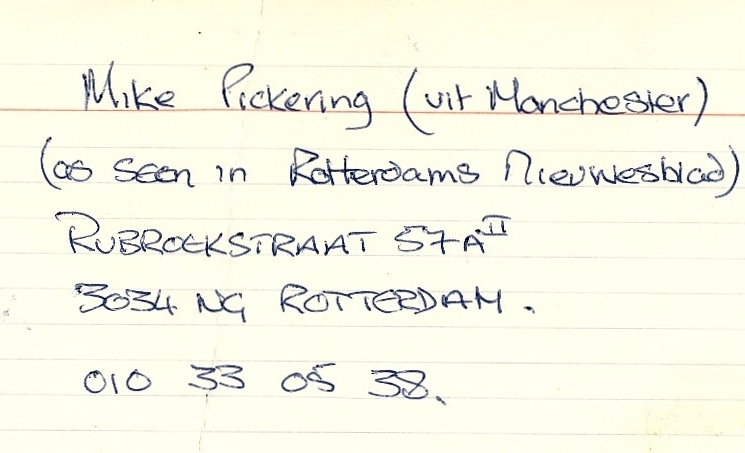 Mike Pickering (uit Manchester)
(as seen in Rotterdams Nieuwesblad)
RUBROEKSTRAAT 57A II
3034 NG ROTTERDAM.
010 33 05 38.